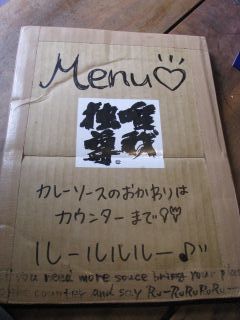 Menu♡
唯我
独尊
カレーソースのおかわりは
カウンターまで♡
ルールルルー♪
you need more souce bring your
counter and say Ru-RuRuRuRu-